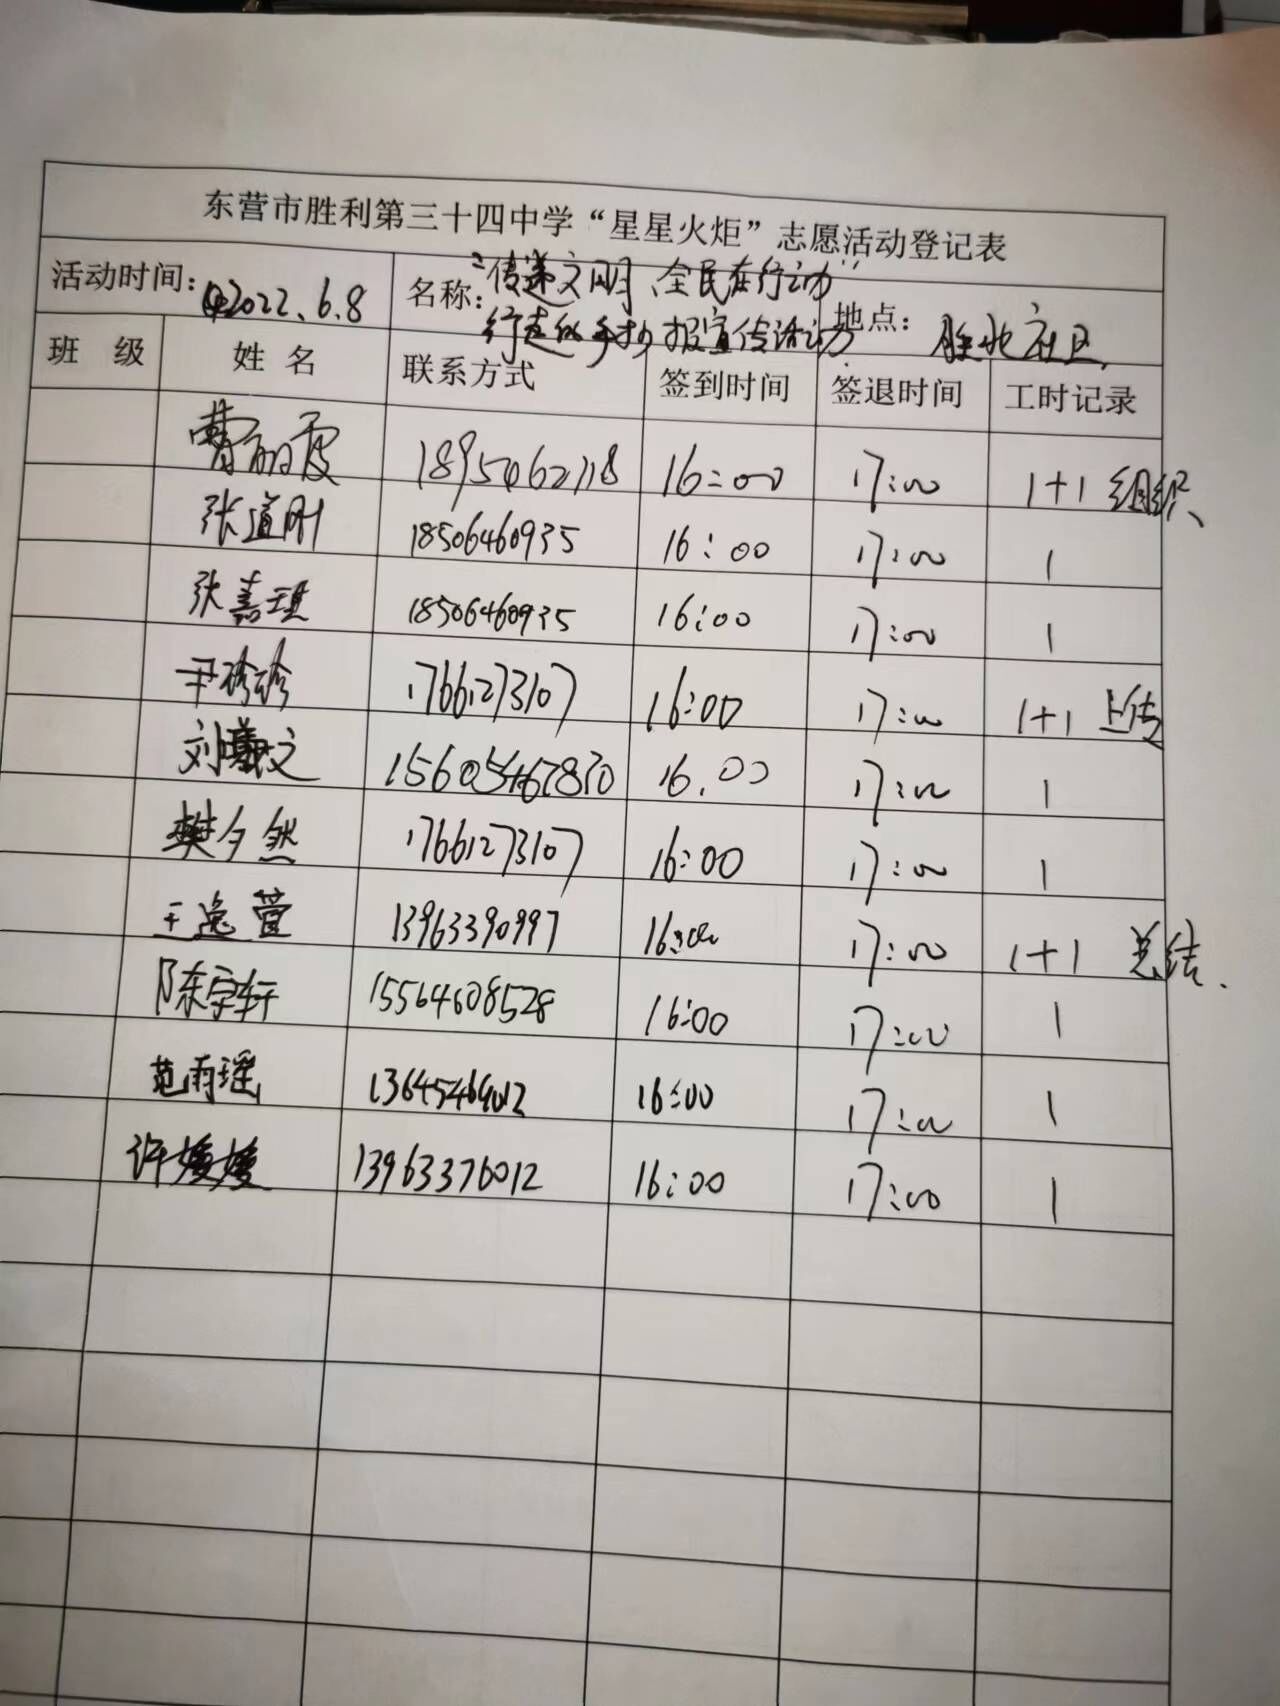 东营市胜利第三十四中学“星星火炬”志愿活动登记表
活动时间：2022.6.8 名称：“传递文明、全民在行动” 行走的手抄报宣传活动 地点：胜北社区
班 级 姓 名 联系方式 签到时间 签退时间 工时记录
曹丽霞 1895062118 16:00 17:00 1+1 组织
张道刚 18506460935 16:00 17:00 1
张嘉琪 18506460935 16:00 17:00 1
尹珍珍 17661273107 16:00 17:00 1+1 上传
刘曦文 15605467870 16.00 17:00 1
樊夕然 17661273107 16:00 17:00 1
王逸萱 13963390997 16:00 17:00 1+1 总结.
陈宇轩 15564608528 16:00 17:00 1
范雨瑶 13645469012 16:00 17:00 1
许媛媛 13963376012 16:00 17:00 1